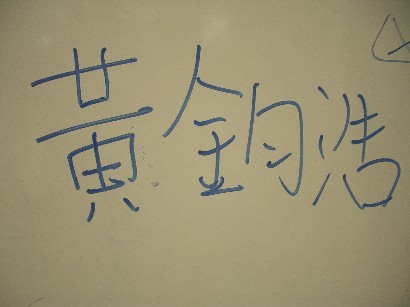 黃鈞浩